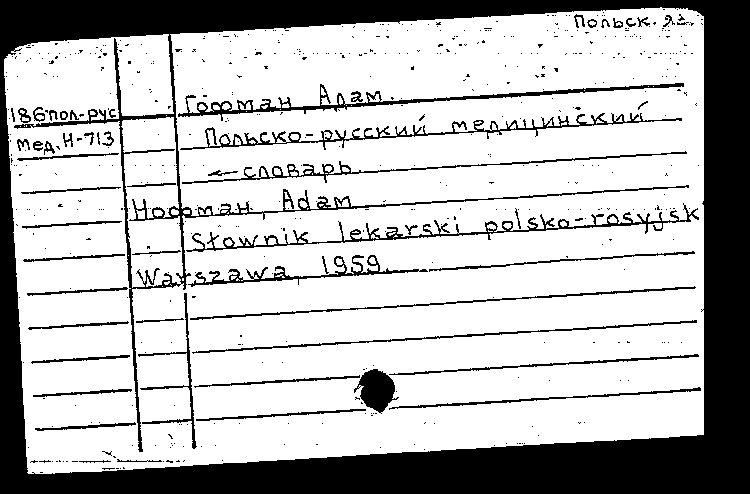 Польск. яз.
186 пол-рус Гофман, Адам.
мед. Н-713 Польско-русский медицинский
словарь.
Hофman, Adam.
Słownik lekarski polsko-rosyjsk
Warszawa, 1959.